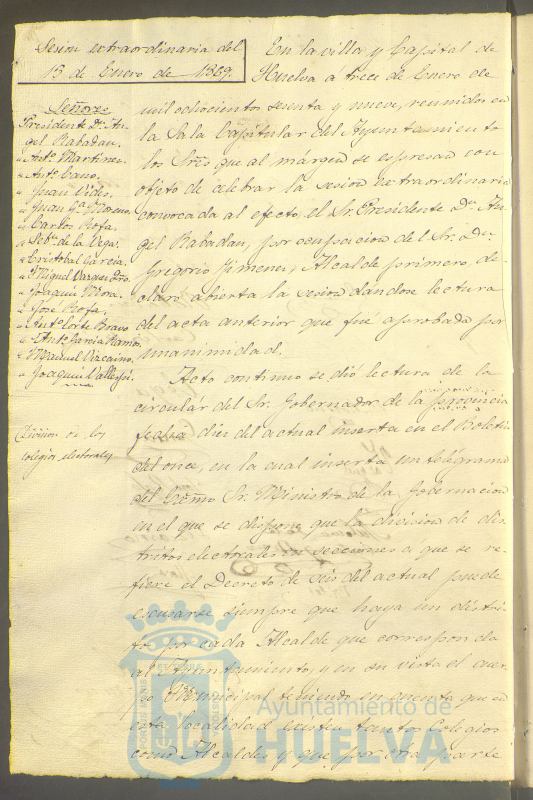 Sesion extraordinaria del
13 de Enero de 1869.
Señores
Presidente Dn. An-
gel Rabadan.
" Antº. Martinez
" Antº. Cano.
" Juan Vides.
" Juan Gª. Moreno.
" Carlos Rofa.
" Sebn. de la Vega.
" Cristobal Garcia.
" Miguel Vazquez
" Joaquin Mora.
" Jose Rofa.
" Antº. Corte Bravo
" Antº. Garcia Ramos
" Manuel Vizcaino.
" Joaquin Vallejo.
Division de los
colegios electorales
En la villa y Capital de
Huelva a trece de Enero de
mil ochocientos sesenta y nueve, reunidos en
la Sala Capitular del Ayuntamiento
los Sres. que al márgen se espresan con
objeto de celebrar la sesion extraordinaria
convocada al efecto, el Sr. Presidente Dn. An-
gel Rabadan, por ocupacion del Sr. Dn.
Gregorio Jimenez, Alcalde primero, de-
claró abierta la sesion dándose lectura
del acta anterior que fué aprobada por
unanimidad.
Acto continuo se dió lectura de la
circulár del Sr. Gobernador de la provincia
fecha diez del actual inserta en el Boletin
del once, en la cual inserta un telégrama
del Exmo. Sr. Ministro de la Gobernacion
en el que se dispone que la division de dis-
tritos electorales en secciones a que se re-
fiere el Decreto de seis del actual puede
escusarse siempre que haya un distri-
to por cada Alcalde que corresponda
al Ayuntamiento, y en su vista el cuer-
po Municipal teniendo en cuenta que en
esta localidad existen tantos Colegios
como Alcaldes y que por otra parte
Ayuntamiento de
HUELVA